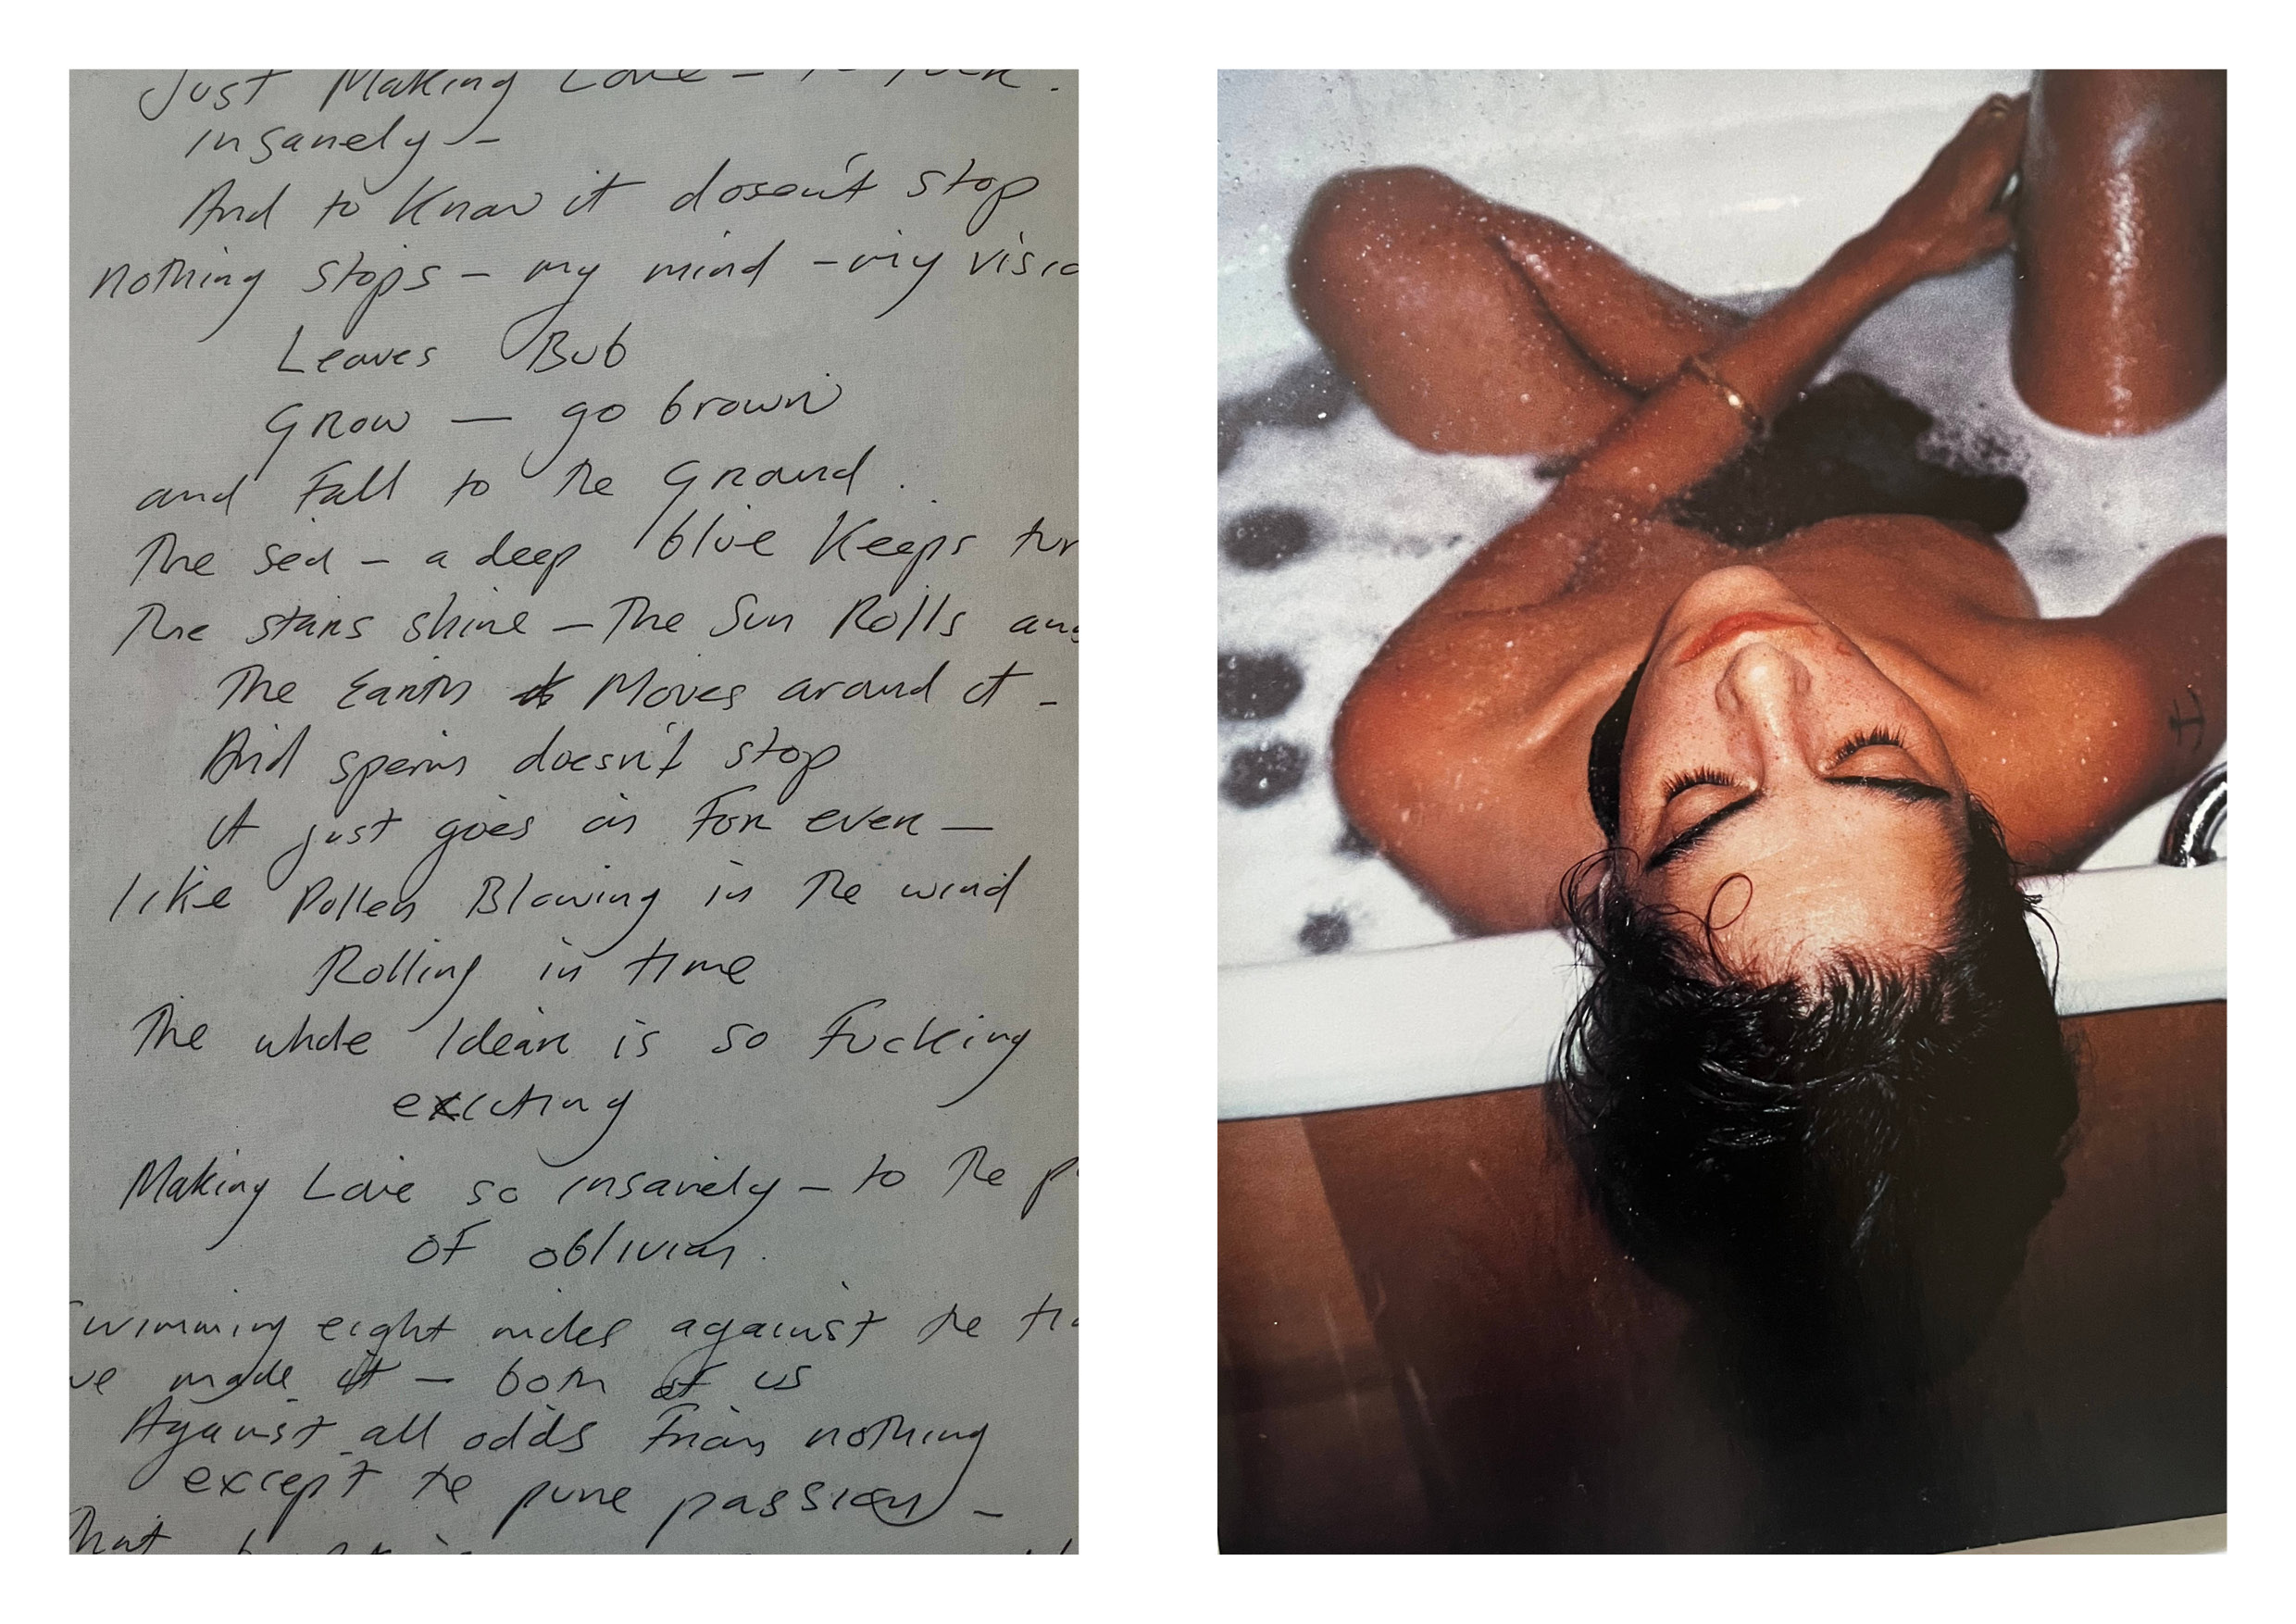 Just Making Love –
insanely –
And to Know it dosen't stop
nothing stops – my mind – my
Leaves Bub
Grow — go brown
and Fall to the Ground.
The Sea – a deep blue Keeps
The stars shine – The Sun Rolls
The Earth Moves around it –
And sperm doesn't stop
it just goes on For ever —
like Pollen Blowing in the wind
Rolling in time
The whole Idear is so Fucking
exicting
Making Love so insanely – to the
OF oblivion.
Swimming eight miles against the
made it – both of us
Against all odds From nothing
except the pure passion –
That